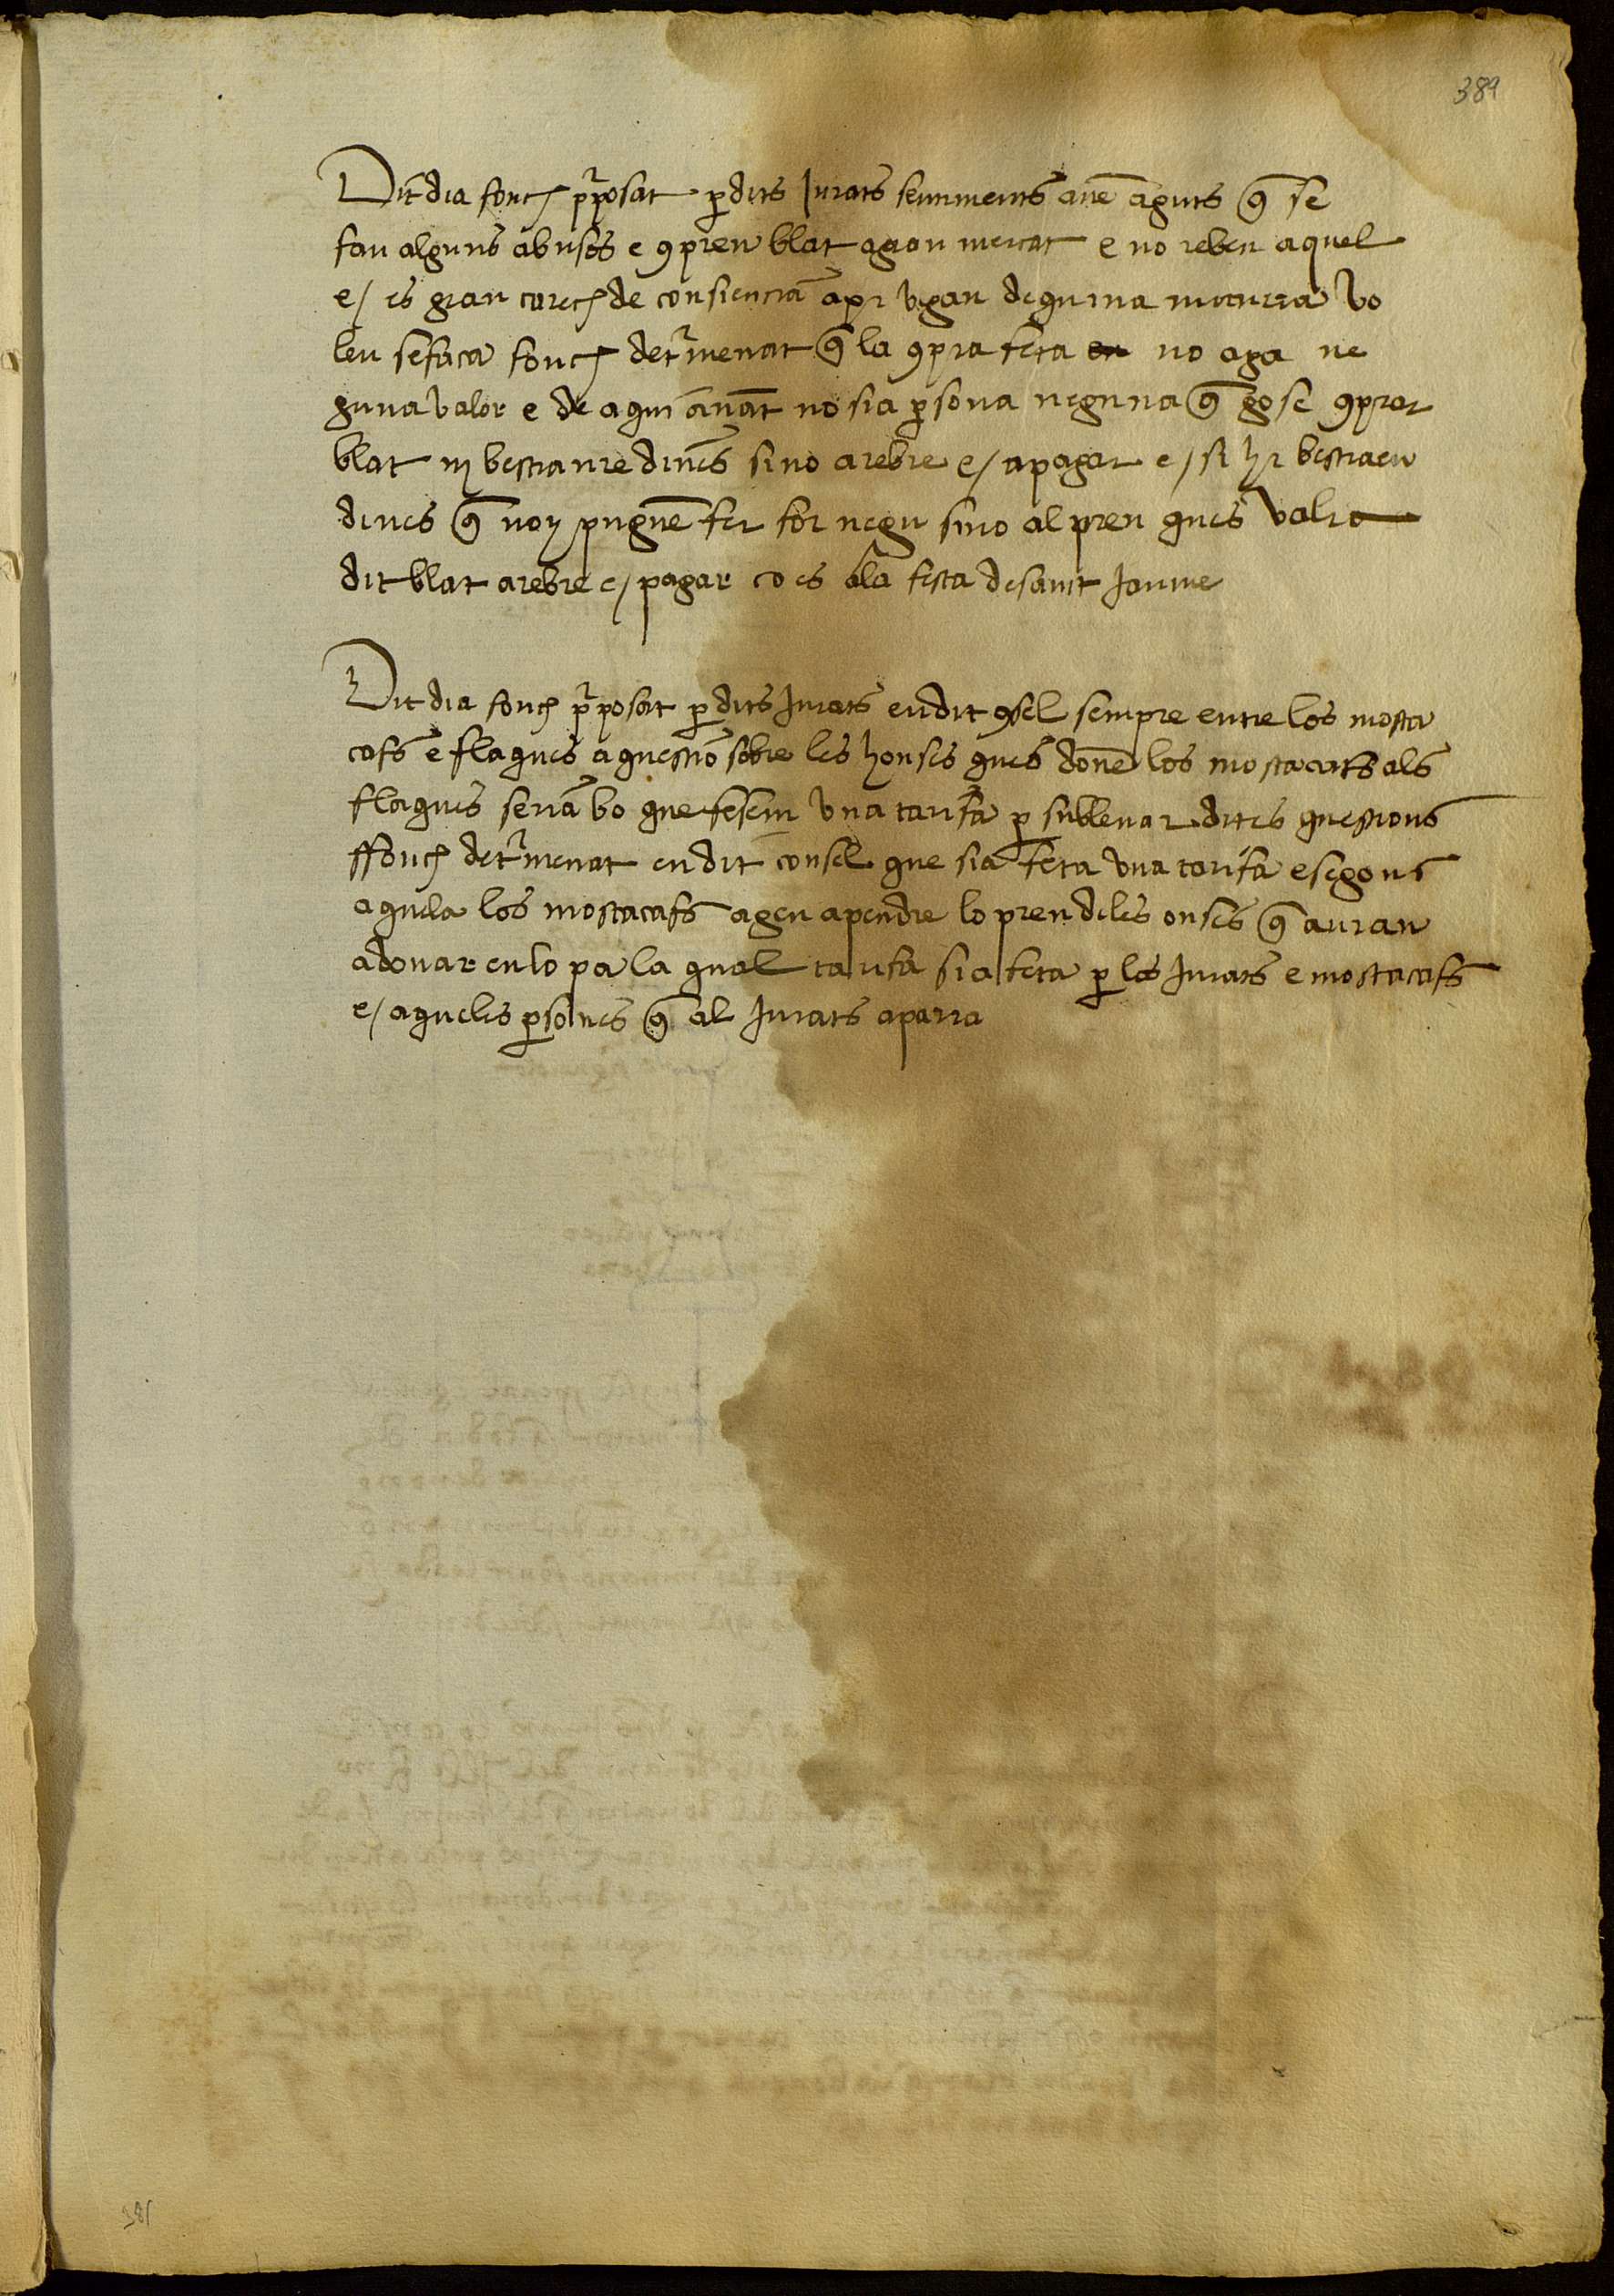 389
Dit dia fonch pposat p dits Jurats sentiments auē aguts q̄ se
fan alguns abusos e 9pren blat agran mercat e no reben aquel
e/ es gran carech de consiencia vgan de quina manera vo
leu se faca fonch det'menat q̄ la 9pra feta no aga ne
guna valor e de aqui auāt no sia psona neguna q̄ gose 9prar
blat ny bestraure dines sino arebre e/ apagar e/ si hi bestraen
dines q̄ noy puguē fer for negu sino al preu ques valra
dit blat arebre e/ pagar co es ala festa de sanct Jaume
Dit dia fonch pposat p dits Jurats en dit 9sel sempre entre los mosta
cafs e flaques a questio sobre les honses ques donē los mostacafs als
flaques seria bo que fesem vna tarifa p sullevar dites questions
ffonch det'menat en dit consel que sia feta vna tarifa e segons
aquela los mostacafs agen apendre lo preu de les onses q̄ auran
adonar en lo pa la qual tarifa sia feta p los Jurats e mostacafs
e/ aqueles psones q̄ al Jurats aparra
381